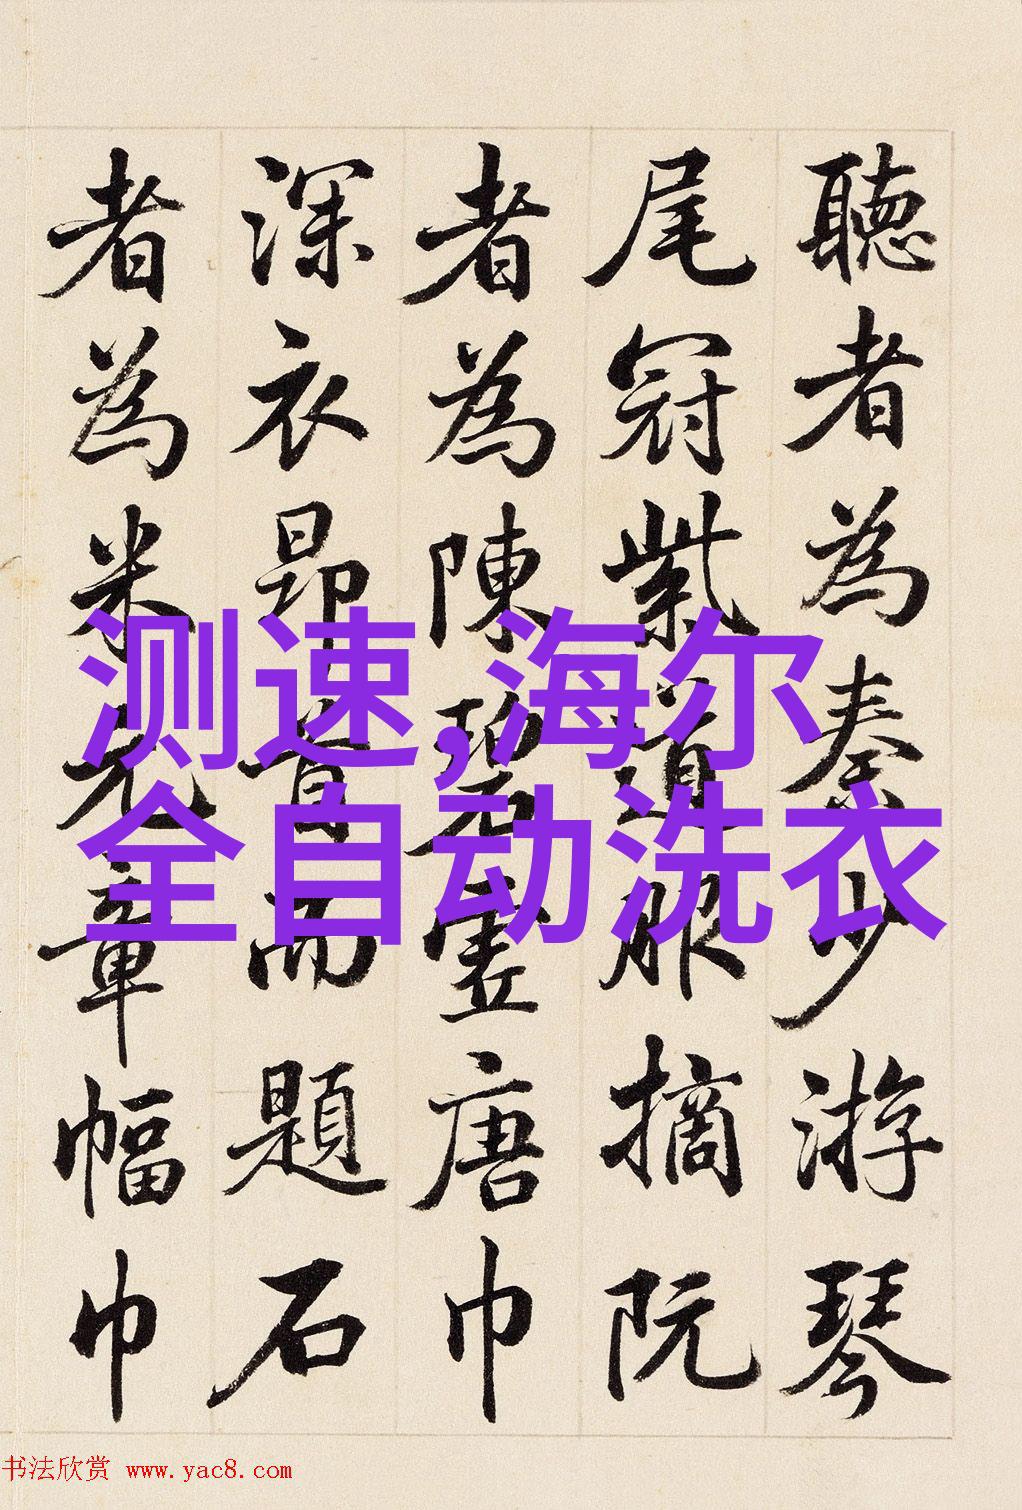 聽者為秦少游琴
尾冠紫道服摘阮
者為陳碧虛唐巾
深衣昂首而題石
者為米元章幅巾
测速,海尔
全自动洗衣
书法欣赏 www.yac8.com